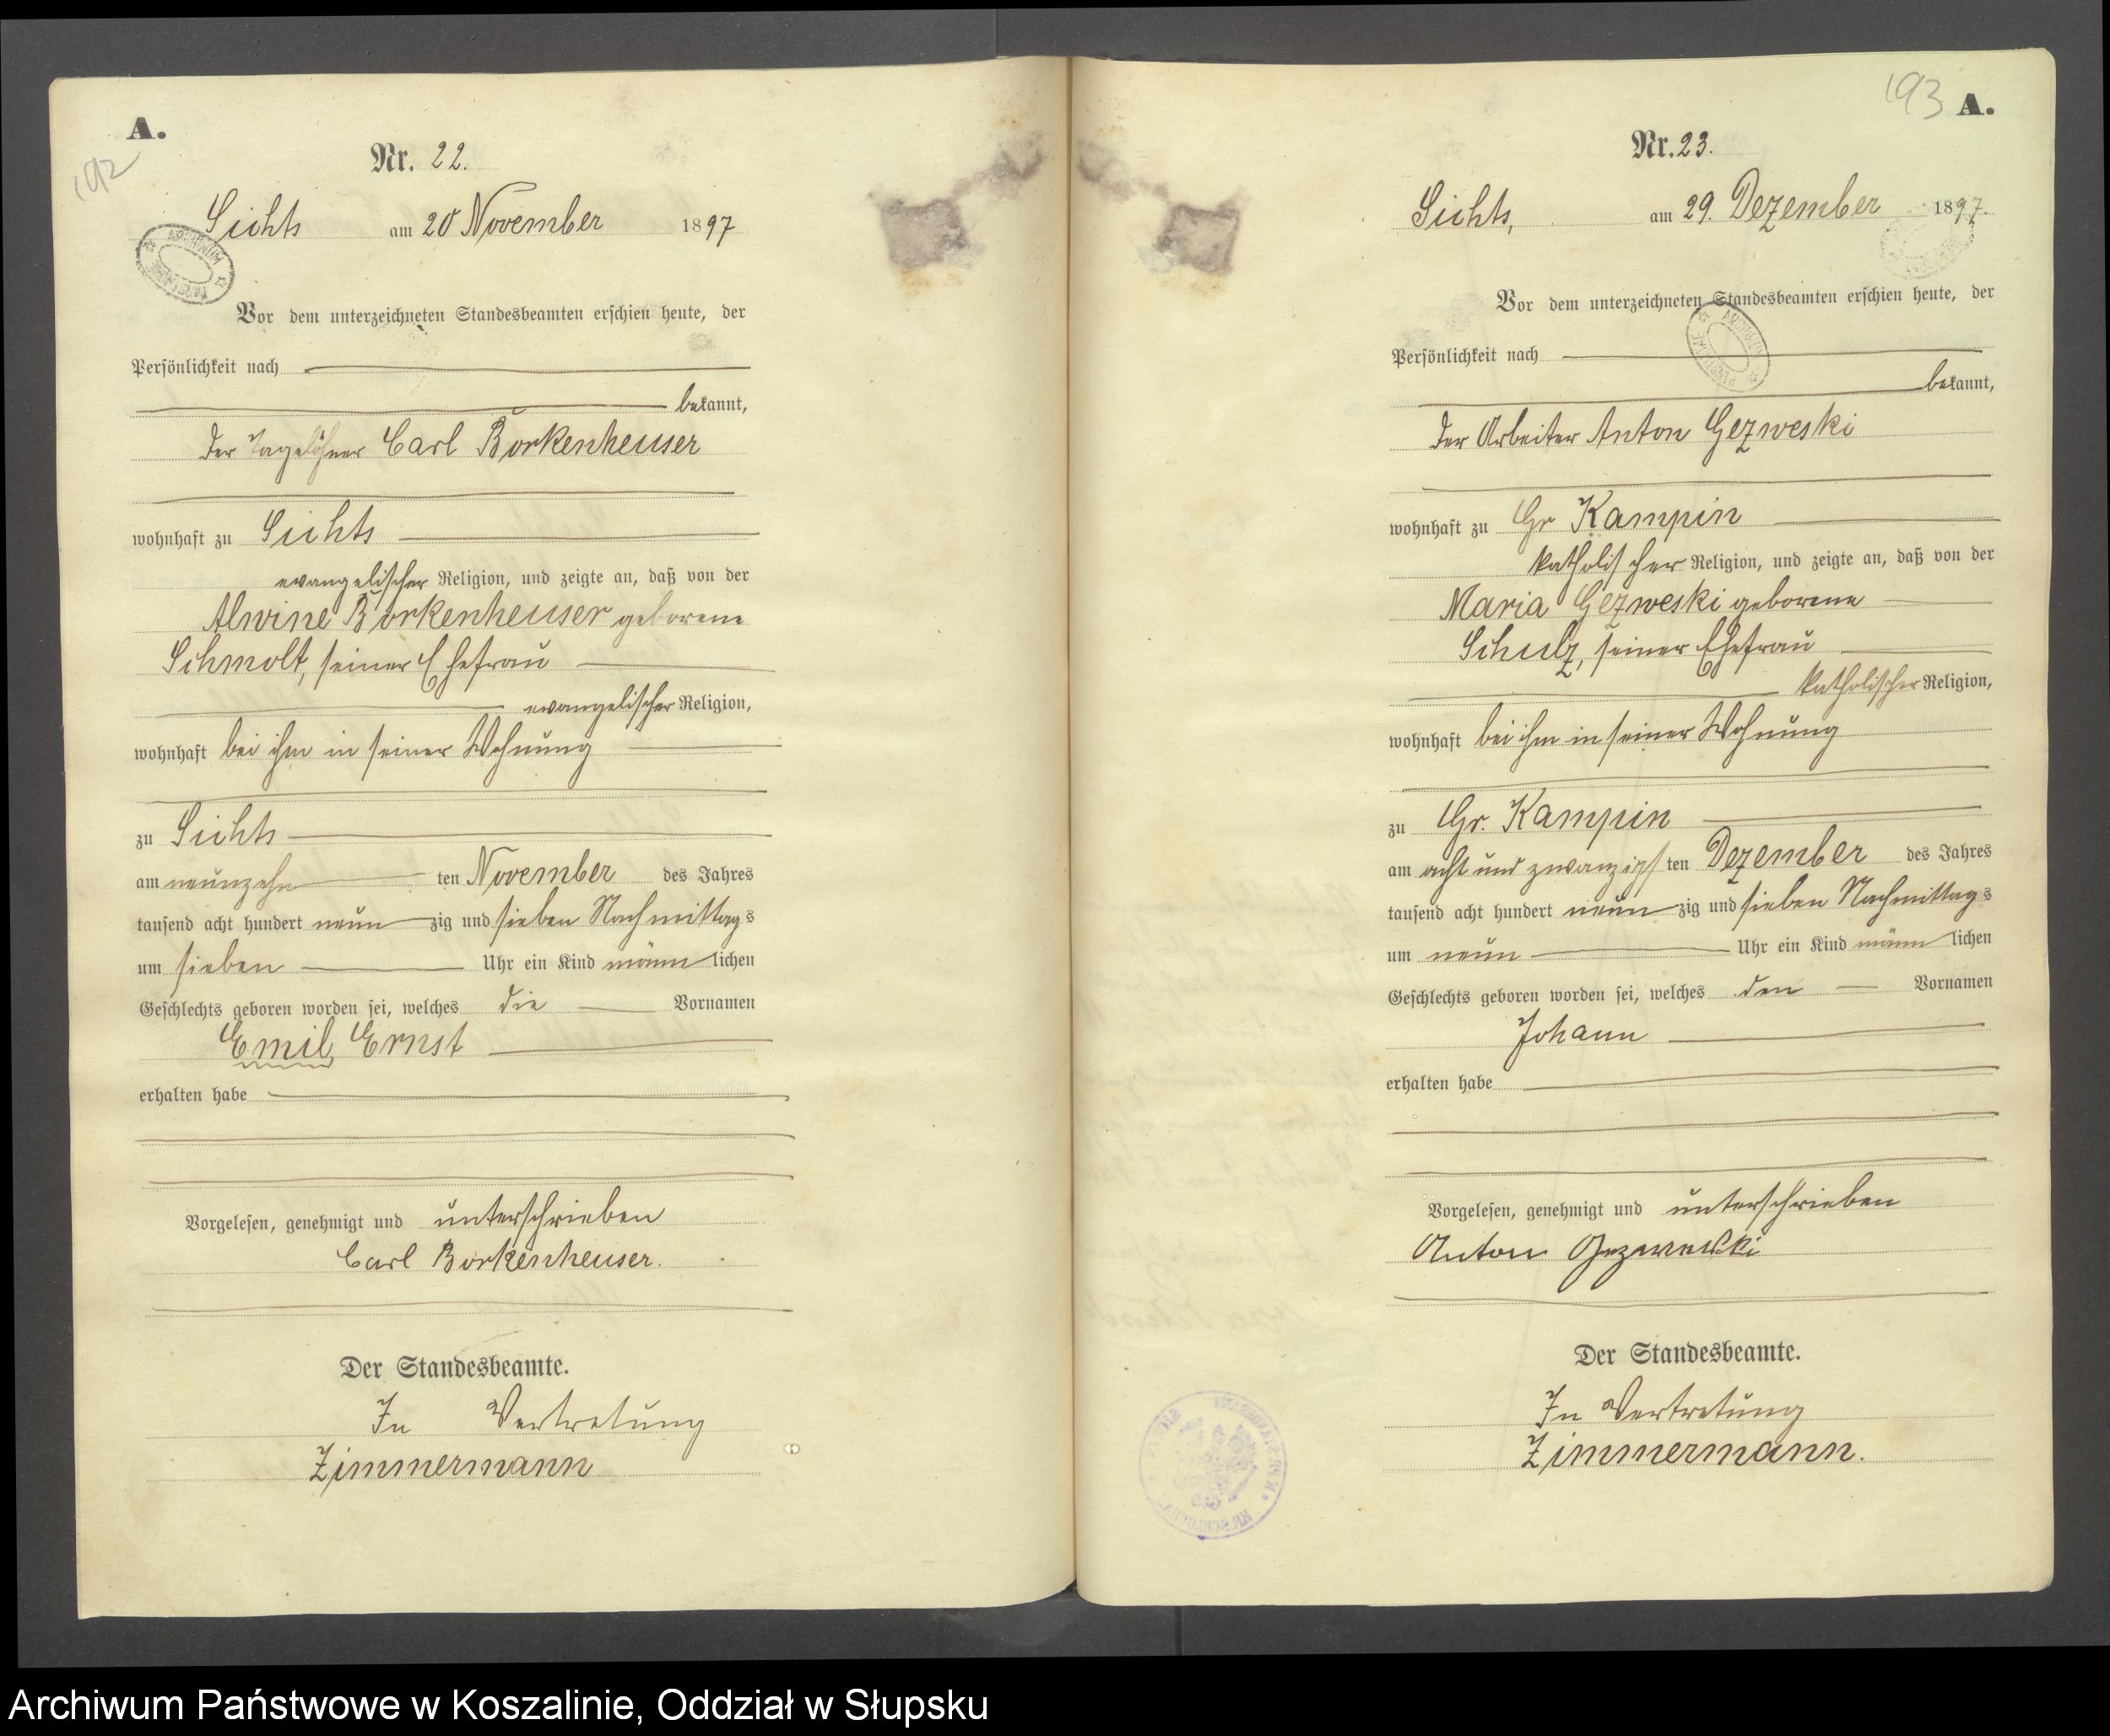 A.
192
Nr. 22.
Sichts am 20 November 1897
Vor dem unterzeichneten Standesbeamten erschien heute, der
Persönlichkeit nach
bekannt,
der Tagelöhner Carl Borkenheuser
wohnhaft zu Sichts
evangelischer Religion, und zeigte an, daß von der
Alwine Borkenheuser geborene
Schmolt, seiner Ehefrau
evangelischer Religion,
wohnhaft bei ihm in seiner Wohnung
zu Sichts
am neunzehn ten November des Jahres
tausend acht hundert neun zig und sieben Nachmittags
um sieben Uhr ein Kind männ lichen
Geschlechts geboren worden sei, welches die Vornamen
Emil Ernst
erhalten habe
Vorgelesen, genehmigt und unterschrieben
Carl Borkenheuser.
Der Standesbeamte.
In Vertretung
Zimmermann
193
A.
Nr. 23.
Sichts, am 29. Dezember 1897.
Vor dem unterzeichneten Standesbeamten erschien heute, der
Persönlichkeit nach
bekannt,
der Arbeiter Anton Gezweski
wohnhaft zu Gr Kampin
katholischer Religion, und zeigte an, daß von der
Maria Gezweski geborene
Schulz, seiner Ehefrau
katholischer Religion,
wohnhaft bei ihm in seiner Wohnung
zu Gr. Kampin
am acht und zwanzigst ten Dezember des Jahres
tausend acht hundert neun zig und sieben Nachmittags
um neun Uhr ein Kind männ lichen
Geschlechts geboren worden sei, welches den Vornamen
Johann
erhalten habe
Vorgelesen, genehmigt und unterschrieben
Anton
Der Standesbeamte.
In Vertretung
Zimmermann.
Archiwum Państwowe w Koszalinie, Oddział w Słupsku